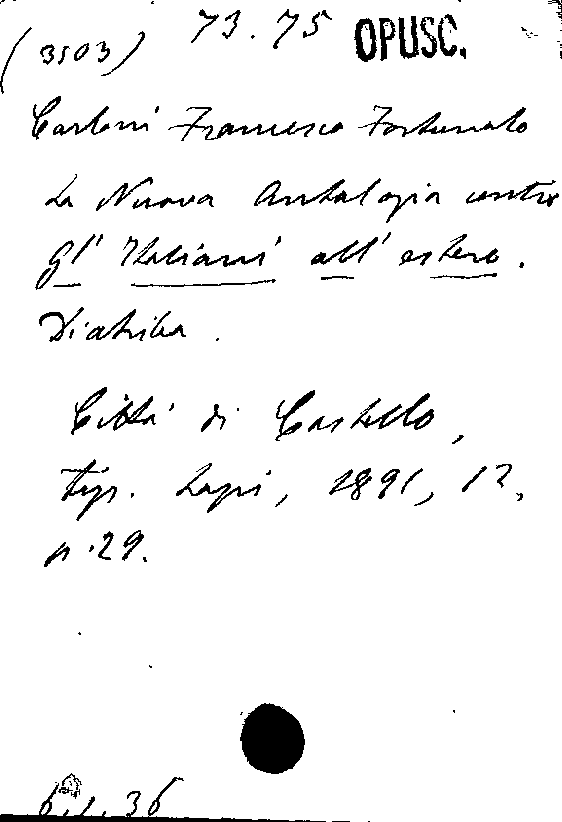 (3503) 73.75 OPUSC.
Carloni Francesco Fortunato
La Nuova Antologia contro
gl' Italiani all' estero.
Diatriba.
Città di Castello,
tip. Lapi, 1891, 12,
p. 29.
6.1.36